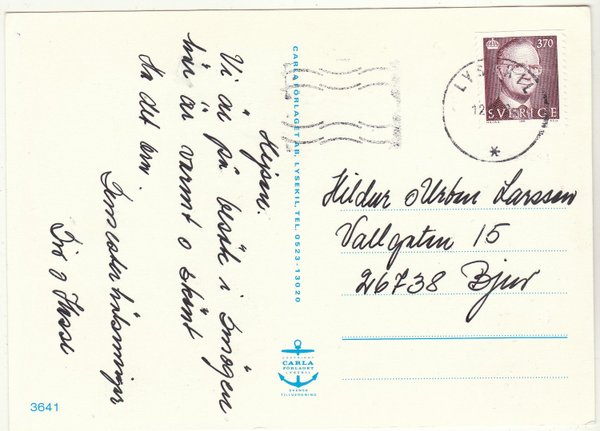 Hejsan.
Vi är på besök i Smögen
här är varmt o skönt
Ha det bra.
Semesterhälsningar
CARLA FÖRLAGET AB, LYSEKIL, TEL. 0523-13020
370
SVERIGE
LYSEKIL
12
Hildur o Urban Larsson
Vallgatan 15
26738 Bjuv
CARLA
FÖRLAGET
LYSEKIL
SVENSK
TILLVERKNING
3641